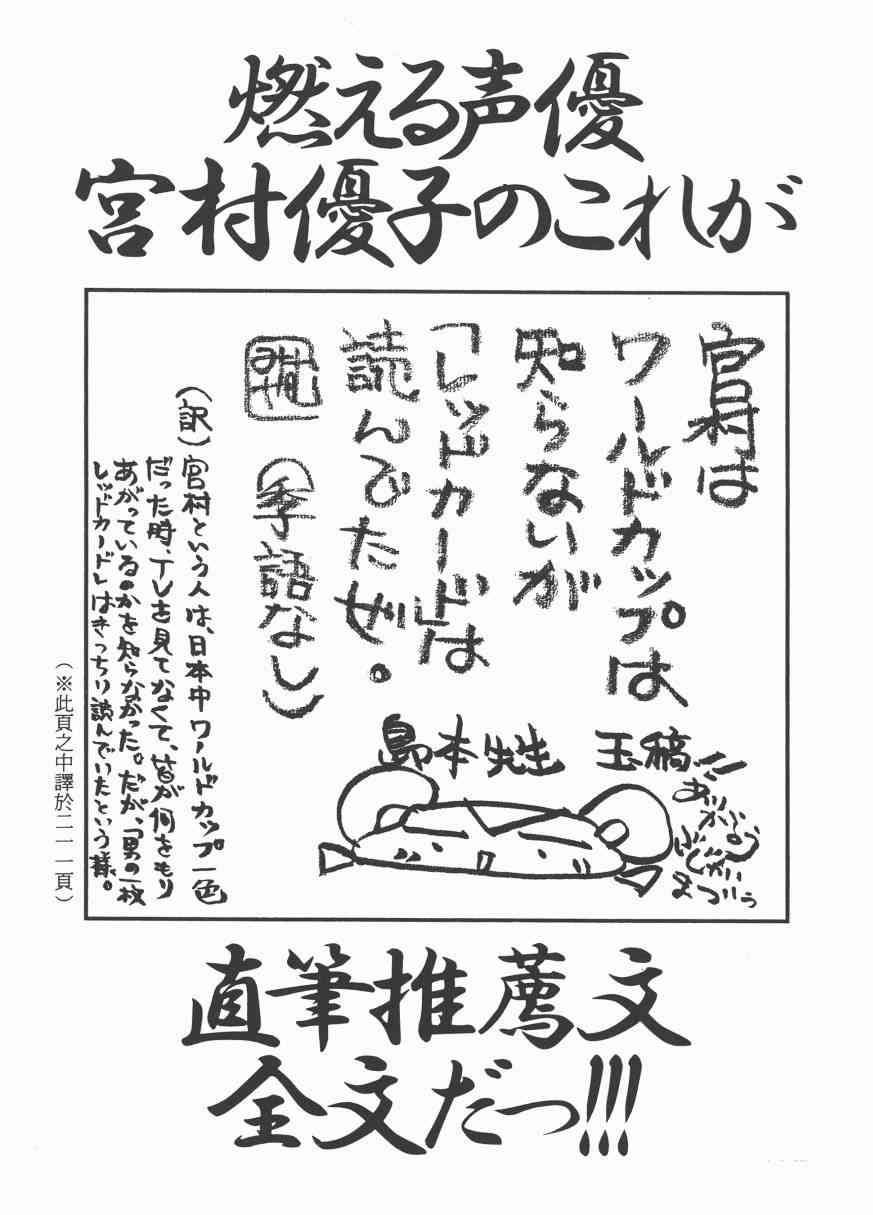 燃える声優
宮村優子のこれが
宮村は
ワールドカップは
知らないが
「レッドカード」は
読んでた女。
(季語なし)
(訳)宮村という人は、日本中ワールドカップ一色
だった時、TVを見てなくて、皆が何をもり
あがっているのかを知らなかった。だが、「男の一枚
レッドカード」はきっちり読んでいたという様。
島本先生 玉稿
ありがとう
(※此頁之中譯於二一一頁)
直筆推薦文
全文だっ!!!